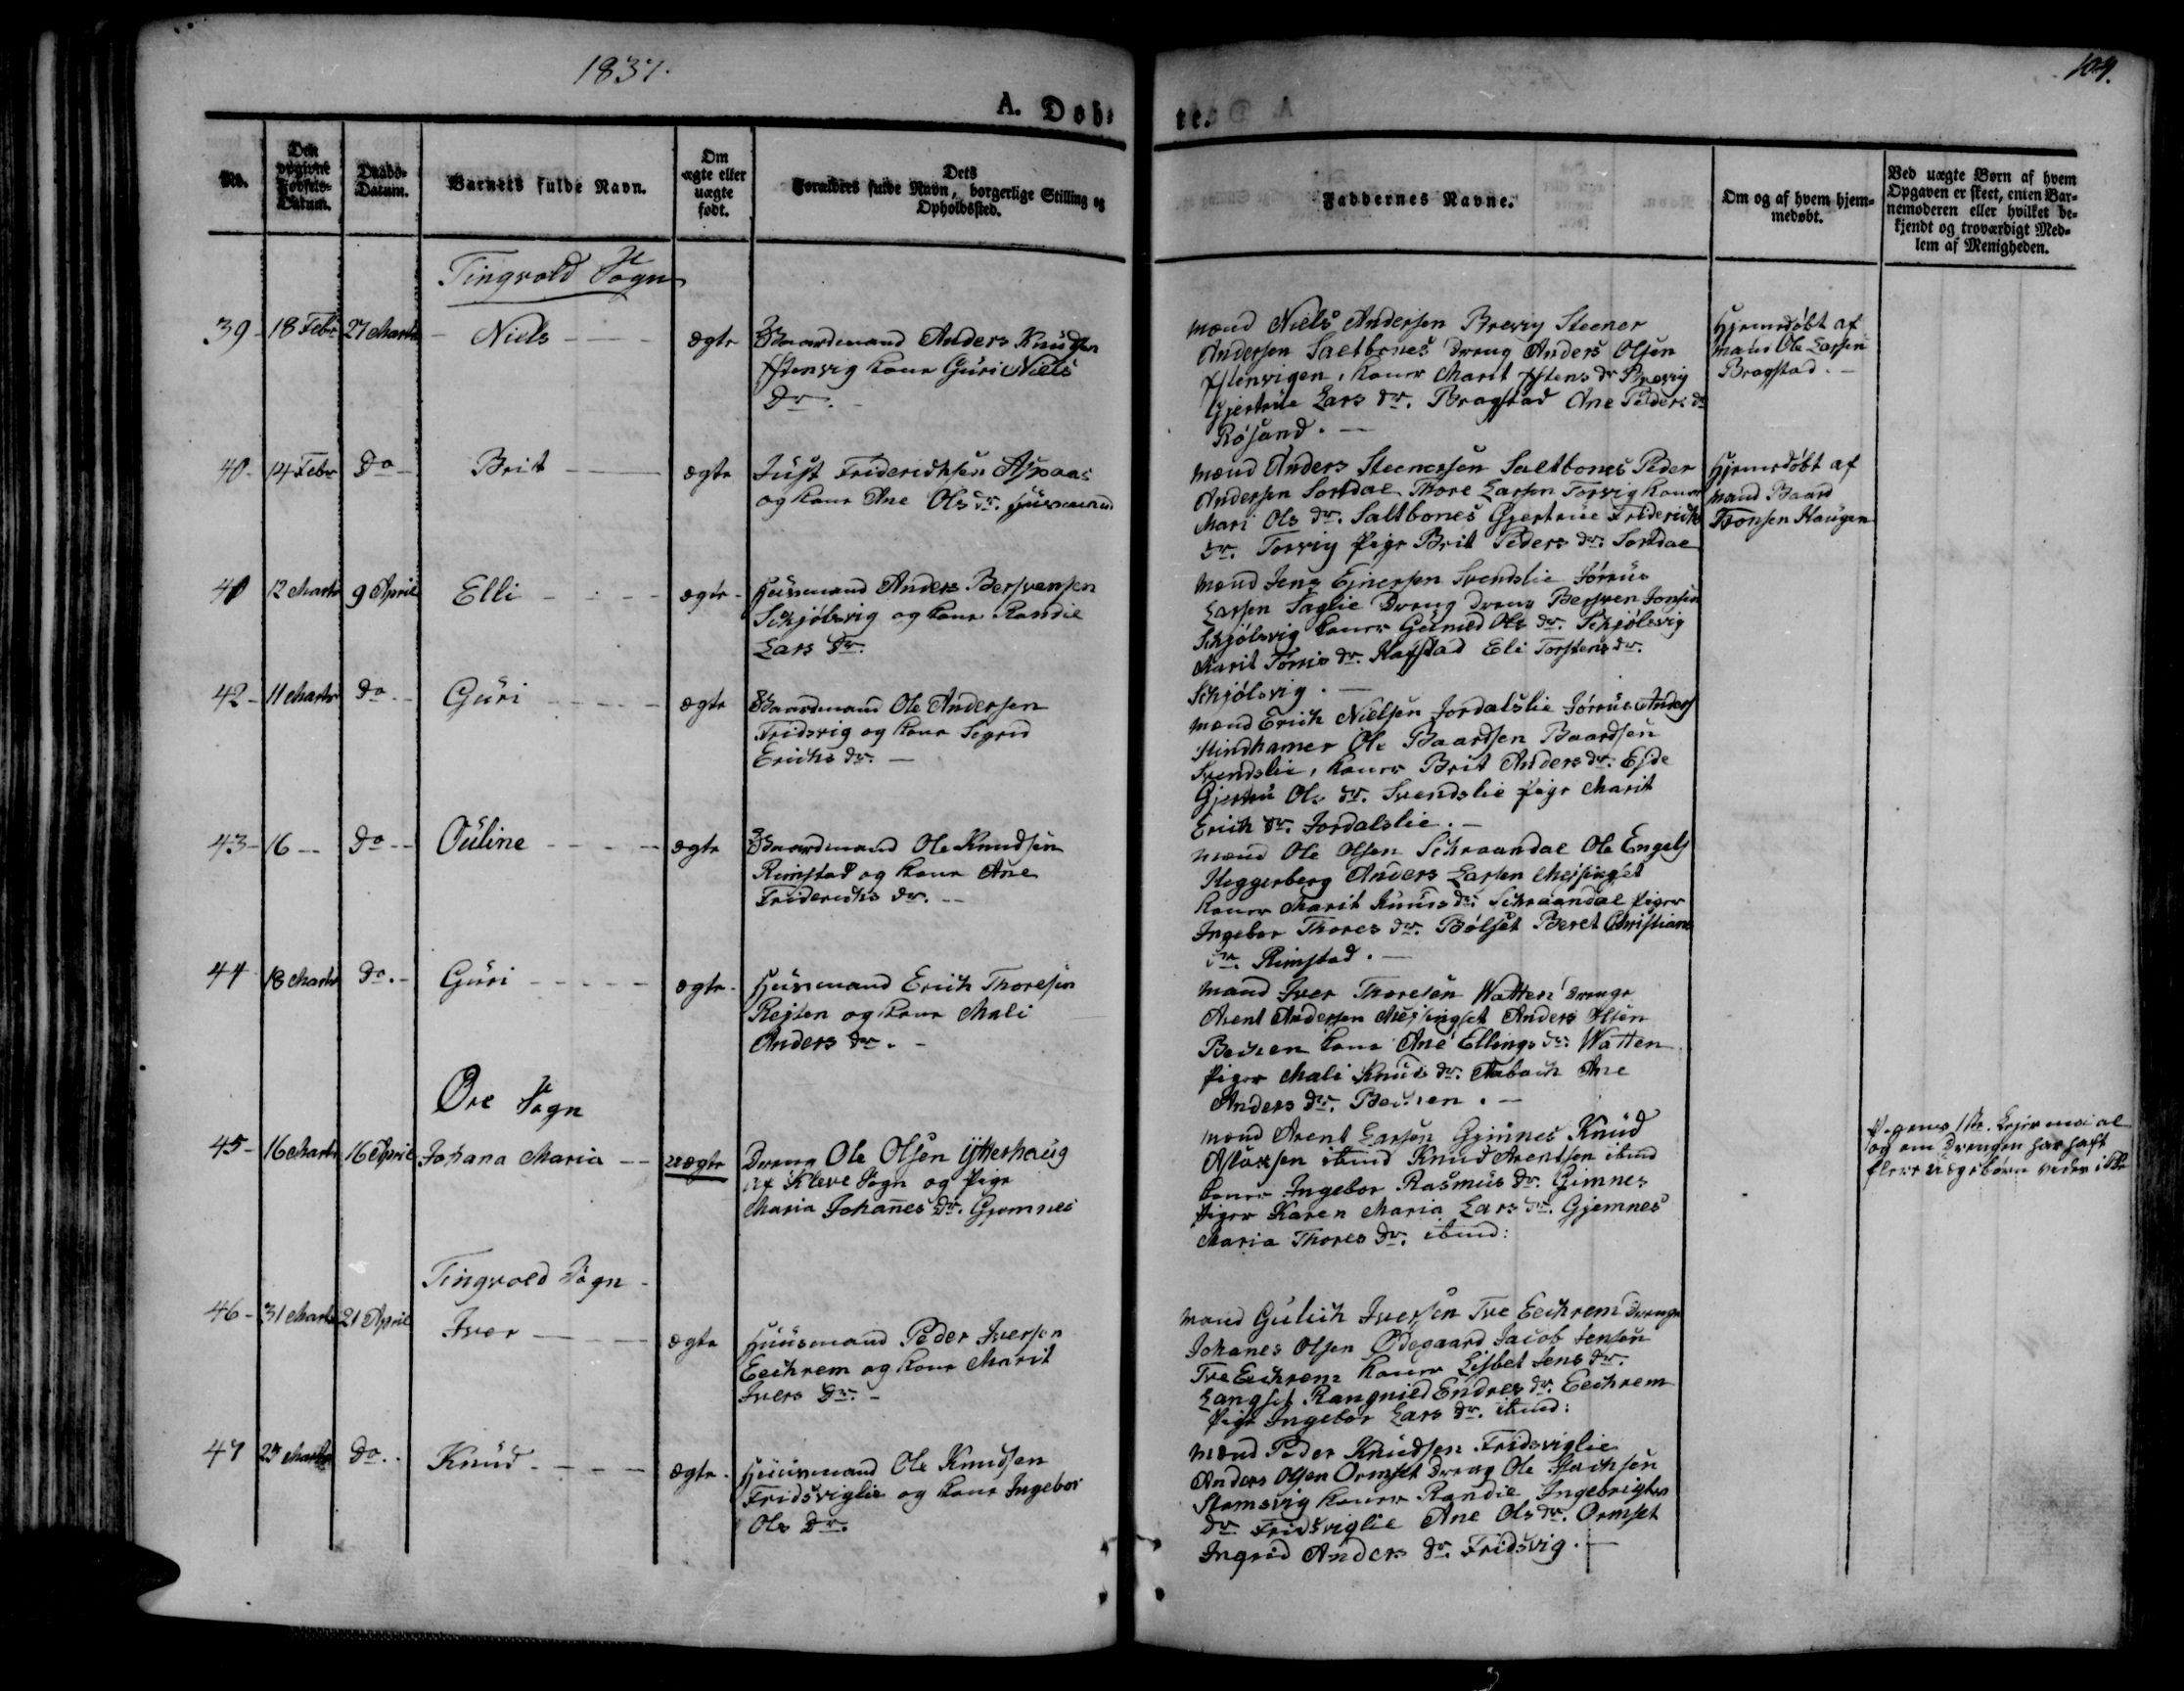 1837.
104.
A. Døb-
te.
No.
Den opgivne Fødsels-Datum.
Daabs-Datum.
Barnets fulde Navn.
Om ægte eller uægte født.
Dets Forældres fulde Navn, borgerlige Stilling og Opholdssted.
Faddernes Navne.
Om og af hvem hjem-
medøbt.
Ved uægte Børn af hvem
Opgaven er skeet, enten Bar-
nemoderen eller hvilket be-
kjendt og troværdigt Med-
lem af Menigheden.
Tingvold Sogn
39 - 18 Febr 27 Marts - Niels - ægte
Gaardmand Anders Knudsen
kone Guri Niels
Dr.
Mænd Niels Andersen Brevig Steener
Andersen Saltbones Dreng Anders Olsen
koner Marit Dr Brevig
Gjertrue Lars Dr. Bragstad Ane Peders Dr
Røsand. -
Hjemedøbt af
Mand Ole Larsen
Bragstad. -
40 - 14 Febr Do - Brit - ægte
Just Friderichsen Aspaas
og kone Ane Ols Dr. Huusmand
Mænd Anders Steenersen Saltbones Peder
Andersen Sordal Thore Larsen Torvig koner
Mari Ols Dr. Saltbones Gjertrue Friderichs
Dr. Torvig Pige Brit Peders Dr. Sordal
Hjemedøbt af
Mand Baard
Tronsen Haugen
41 12 Marts 9 April Elli - ægte -
Huusmand Anders Bersvensen
Schjølsvig og kone Randie
Lars Dr.
Mænd Jens Ejnersen Svendslie Jørrus
Larsen Saglie Dreng Dreng Bersven Jonsen
Schjølsvig koner Gunild Ols Dr. Schjølsvig
Marit Dr. Rafstad Eli Torstens Dr.
Schjølsvig. -
42 - 11 Marts Do - Guri - ægte
Gaardmand Ole Andersen
Fridsvig og kone Sigrid
Erichs Dr. -
Mænd Erich Nielsen Jordalslie Jørrus Anders
Hindhamer Ole Baardsen Baardsen
Svendslie, koner Brit Anders Dr. Eide
Gjertru Ols Dr. Svendslie Pige Marit
Erich Dr. Jordalslie. -
43 - 16 - Do - Ouline - ægte
Gaardmand Ole Knudsen
Rimstad og kone Ane
Friderichs Dr. -
Mænd Ole Olsen Schraandal Ole Engels
Heggerberg Anders Larsen Mejsingset
koner Marit Knuds Dr. Schraandal Piger
Ingebor Thores Dr. Bølset Beret Christians
Dr. Rimstad. -
44 18 Marts Do. - Guri - ægte -
Huusmand Erich Thoresen
Rejten og kone Mali
Anders Dr. -
Mand Iver Thoresen Watten Drenge
Arent Andersen Mejsingset Anders Olsen
kone Ane Ellings Dr. Watten
Piger Mali Knuds Dr. Aabach Ane
Anders Dr. . -
Øre Sogn
45 - 16 Marts 16 April Johana Maria - uægte
Dreng Ole Olsen Ytterhaug
af Kleve Sogn og Pige
Maria Johanes Dr. Gjemnes
Mænd Arent Larsen Gjimnes Knud
Aslaksen ibid Knud Arentsen ibid
koner Ingebor Rasmus Dr. Gimnes
Piger Karen Maria Lars Dr. Gjemnes
Maria Thores Dr. ibid:
Pigens 1ste
og om Drengen har haft
flere børn vides ikke
Tingvold Sogn -
46 - 31 Marts 21 April Iver - ægte
Huusmand Peder Iversen
Eechrem og kone Marit
Ivers Dr. -
Mand Gulich Iversen Tre Eechrem Drenge
Johanes Olsen Ødegaard Jacob Jensen
Tre Eechrem koner Lisbet Jens Dr.
Langset Rangnild Endres Dr. Eechrem
Pige Ingebor Lars Dr. ibid:
47 Marts Do. - Knud - ægte -
Huusmand Ole Knudsen
Fridsviglie og kone Ingebor
Ols Dr.
Mænd Peder Knudsen Fridsviglie
Anders Olsen Ormset Dreng Ole Isachsen
Stomsvig koner Randie Ingebrigts
Dr Fridsviglie Ane Ols Dr. Ormset
Ingrid Anders Dr. Fridsvig. -